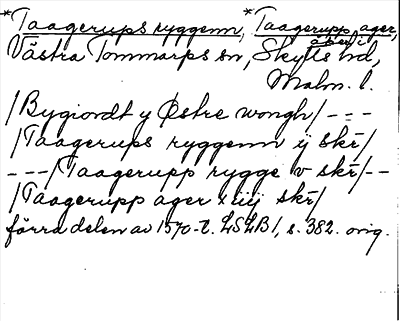 *Taagerups ryggenn, *Taagerupp ager,
Västra Tommarps sn, Skytts hd,
Malm. l.
/Bygiordt y Østre wongh/ - - -
/Taagerups ryggenn ij skr̄/
- - -/Taagerupp rygge v skr̄/ - -
/Taagerupp ager xiiij skr̄/
förra delen av 1570-t. LSLB1, s. 382. orig.